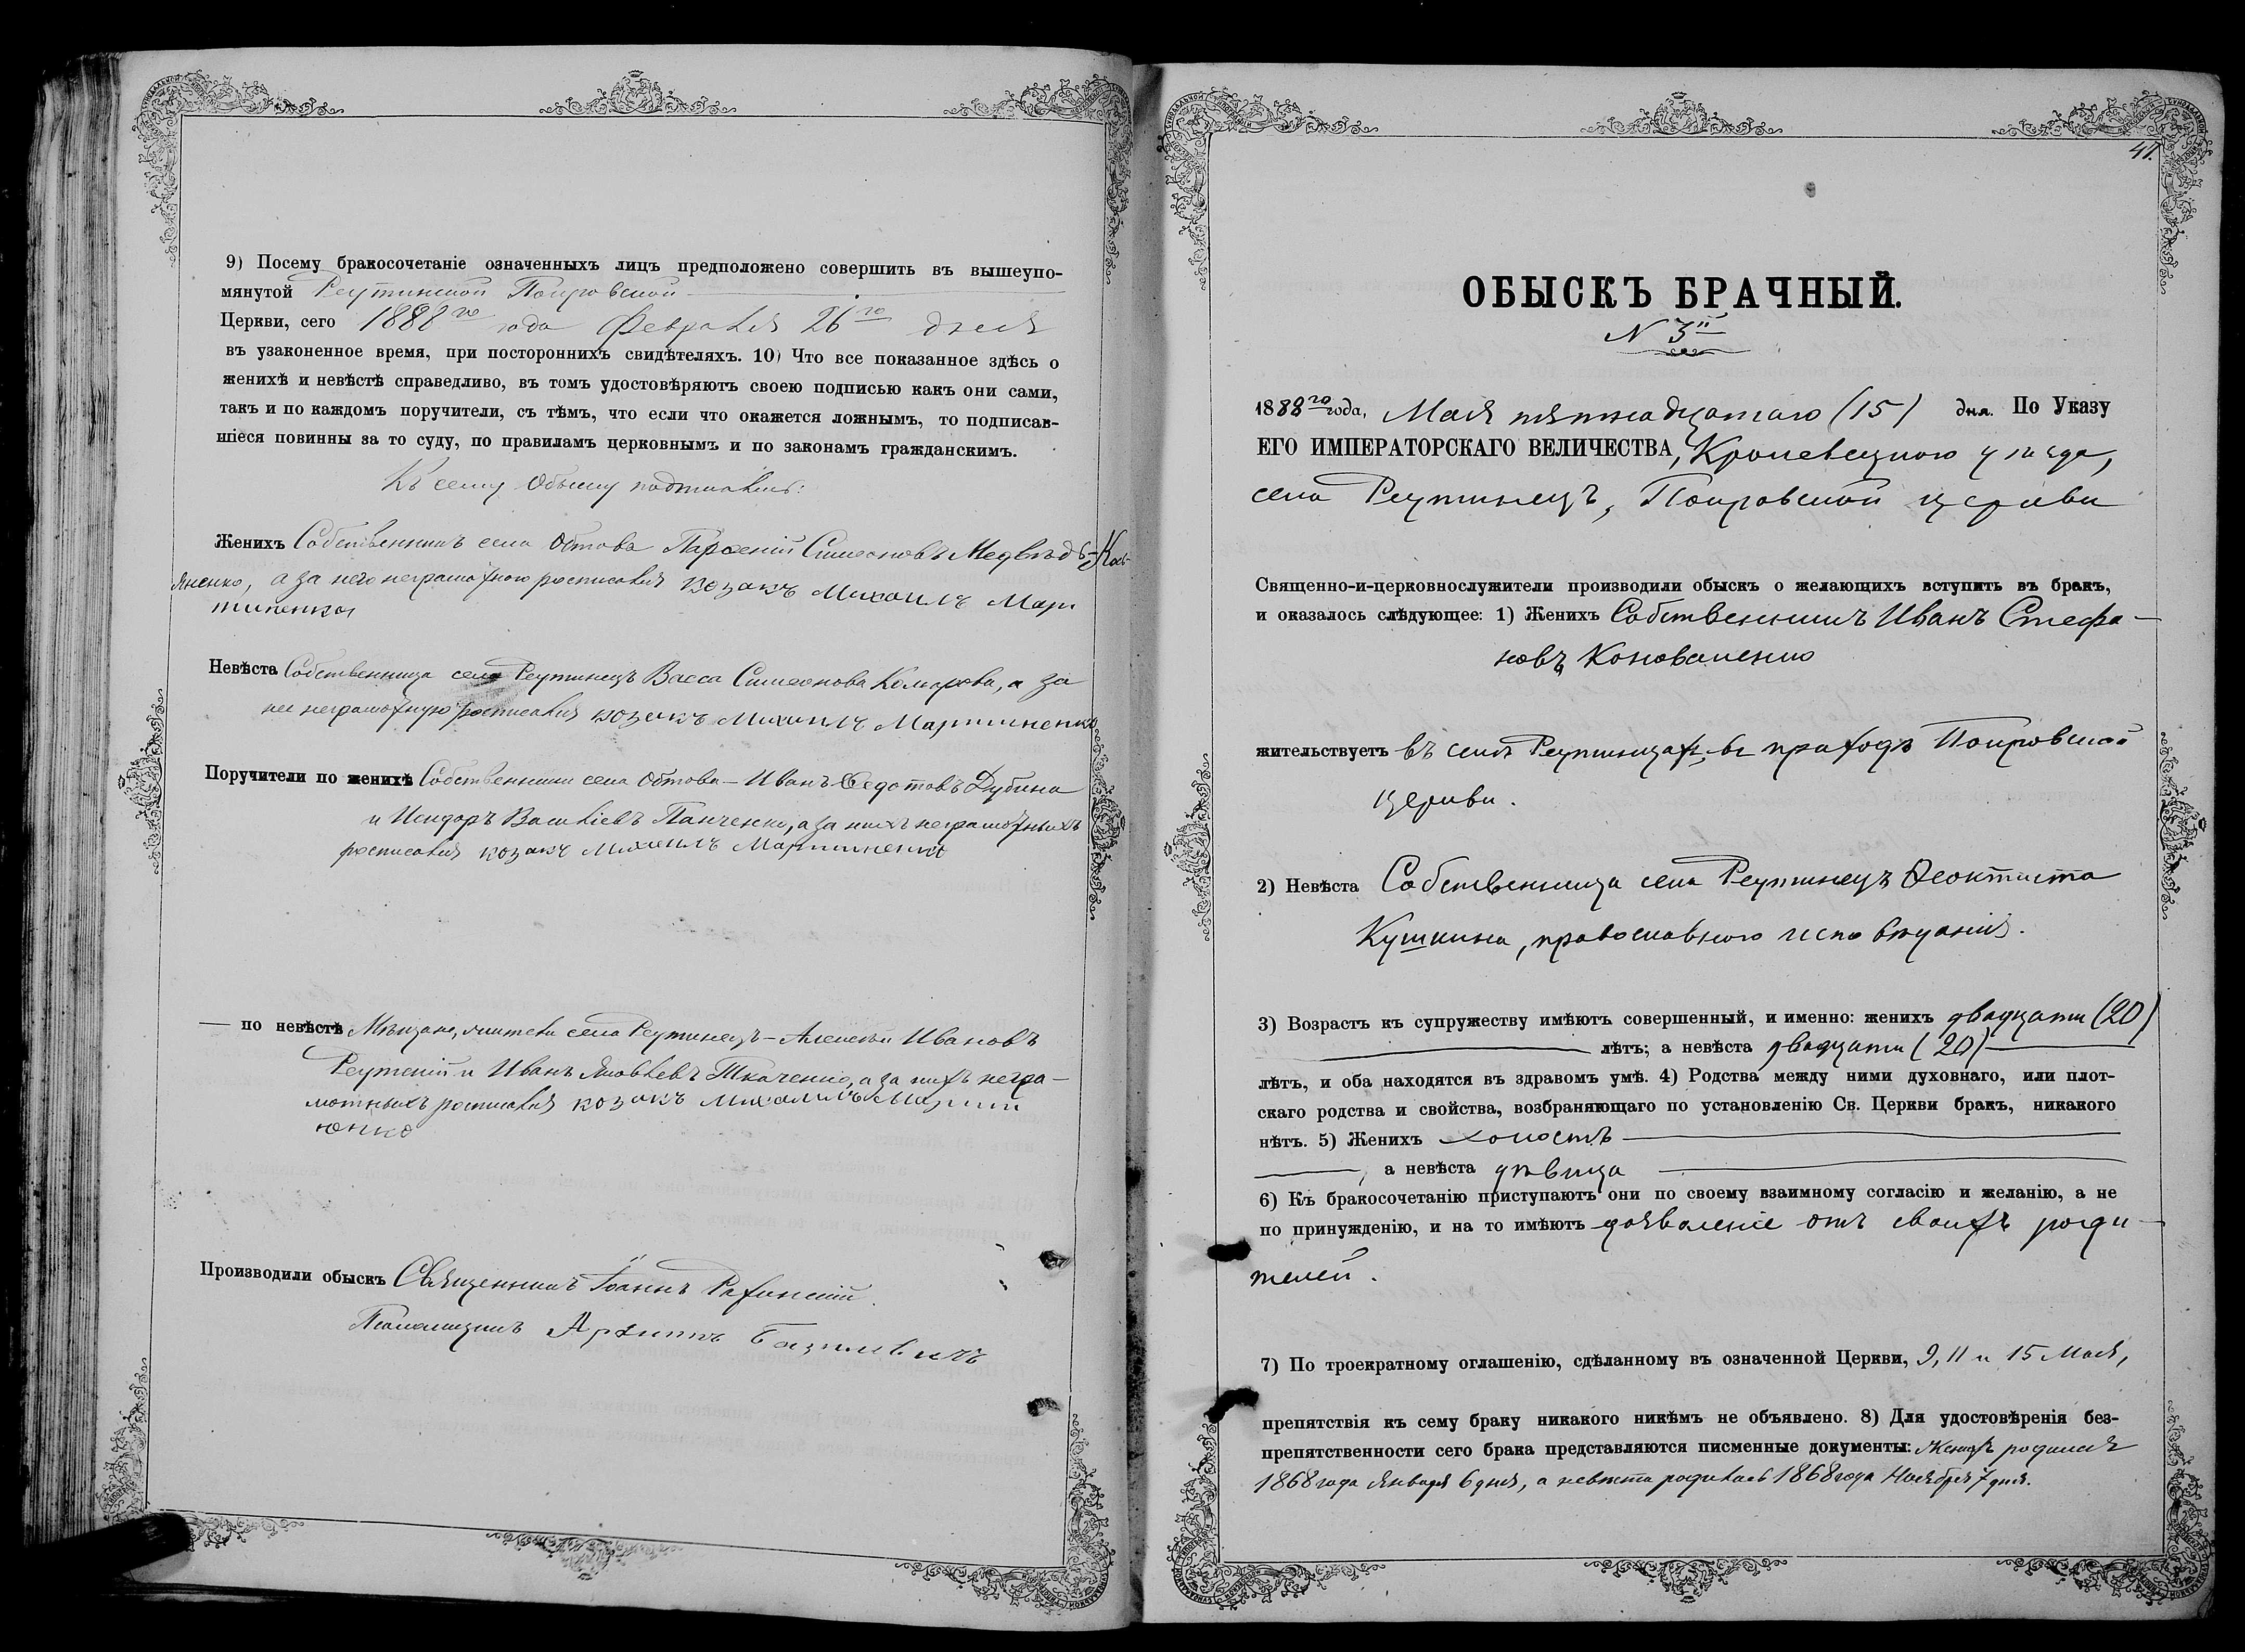 9) Посему бракосочетаніе означенныхъ лицъ предположено совершить въ вышеупо-
мянутой Реутинской Покровской
Церкви, сего 1888го года Февраля 26го дня
въ узаконенное время, при постороннихъ свидѣтеляхъ. 10) Что все показанное здѣсь о
женихѣ и невѣстѣ справедливо, въ томъ удостовѣряютъ своею подписью какъ они сами,
такъ и по каждомъ поручители, съ тѣмъ, что если что окажется ложнымъ, то подписав-
шіеся повинны за то суду, по правиламъ церковнымъ и по законамъ гражданскимъ.
Къ сему Обыску подписались:
Женихъ Собственникъ села Обтова Парѳеній Симеоновъ Медвѣдь-Кась-
яненко, а за него неграмотного росписался козакъ Михаилъ Мар
тиненко
Невѣста Собственница села Реутинецъ Васса Симеонова Комарова, а за
нее неграмотную росписался козакъ Михаилъ Мартиненко
Поручители по женихѣ Собственники села Обтова – Иванъ Ѳедотовъ Дубина
и Исидоръ Васильевъ Панченко, а за нихъ неграмотныхъ
росписался козакъ Михаилъ Мартиненко
— по невѣстѣ Мѣщане, жители села Реутинецъ – Алексѣй Ивановъ
Реутскій и Иванъ Яковлевъ Ткаченко, а за нихъ негра-
мотныхъ росписался козакъ Михаилъ Марти
ненко
Производили обыскъ Священникъ Іоаннъ
Псаломщикъ Базилевичъ
41.
ОБЫСКЪ БРАЧНЫЙ.
N 3й
1888го года, Мая пятнадцатаго (15) дня. По Указу
ЕГО ИМПЕРАТОРСКАГО ВЕЛИЧЕСТВА, Кролевецкого уѣзда,
села Реутинецъ, Покровской церкви
Священно-и-церковнослужители производили обыскъ о желающихъ вступить въ бракъ,
и оказалось слѣдующее: 1) Женихъ Собственникъ Иванъ Стефа-
новъ Коноваленко
жительствуетъ въ селѣ Реутинцахъ, въ приходѣ Покровской
церкви.
2) Невѣста Собственница села Реутинецъ Ѳеоктиста
Кушкина, православного исповѣданія.
3) Возрастъ къ супружеству имѣютъ совершенный, и именно: женихъ двадцати (20)
лѣтъ; а невѣста двадцати (20)
лѣтъ, и оба находятся въ здравомъ умѣ. 4) Родства между ними духовнаго, или плот-
скаго родства и свойства, возбраняющаго по установленію Св. Церкви бракъ, никакого
нѣтъ. 5) Женихъ холостъ
, а невѣста дѣвица
6) Къ бракосочетанію приступаютъ они по своему взаимному согласію и желанію, а не
по принужденію, и на то имѣютъ дозволеніе отъ своихъ роди-
телей.
7) По троекратному оглашенію, сдѣланному въ означенной Церкви, 9, 11 и 15 Мая,
препятствія къ сему браку никакого никѣмъ не объявлено. 8) Для удостовѣренія без-
препятственности сего брака представляются писменные документы: Женихъ родился
1868 года Января 6 дня, а невѣста родилась 1868 года Ноября 7 дня.